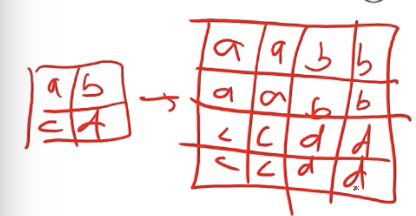 a b
c d
→
a a b b
a a b b
c c d d
c c d d